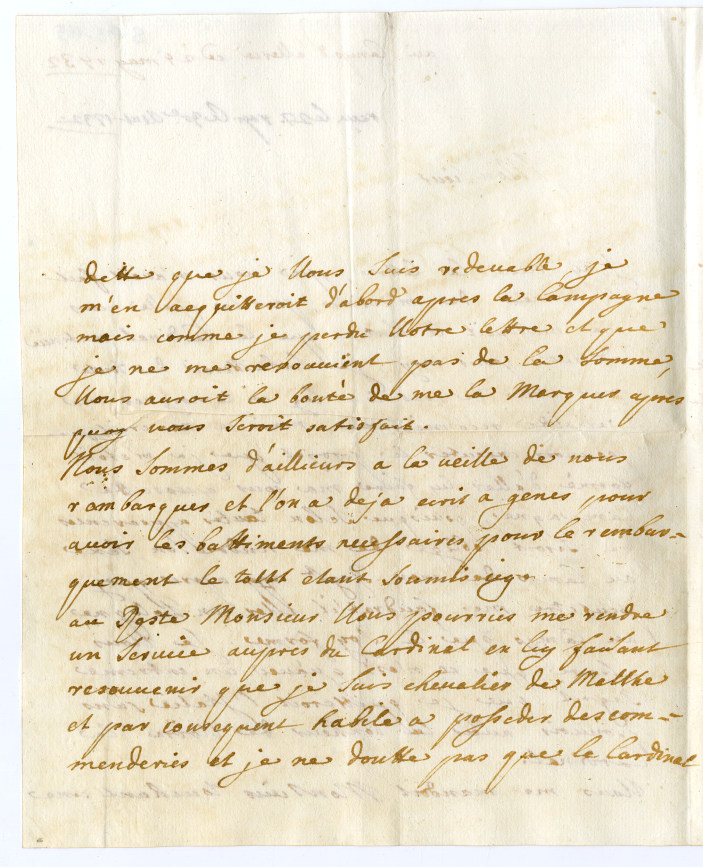 dette que je Vous Suis redeuable, je
m'en aequitteroit d'abord apres la Campagne
mais comme je perdu Votre lettre et que
je ne me resouuient pas de la Somme,
Vous auroit la bonté de me la Marquer apres
quoy vous Seroit satisfait.
Nous Sommes d'ailleurs a la veille de nous
rambarquer et l'on a deja ecrit a genes pour
avoir les battiments necessaires pour le rembar=
quement le tout etant Soumis icy.
au Reste Monsieur Vous pourries me rendre
un Service aupres du Cardinal en luy faisant
resouvenir que je Suis chevalier de Malthe
et par consequent habile a posseder des com=
menderies et je ne doutte pas que le Cardinal